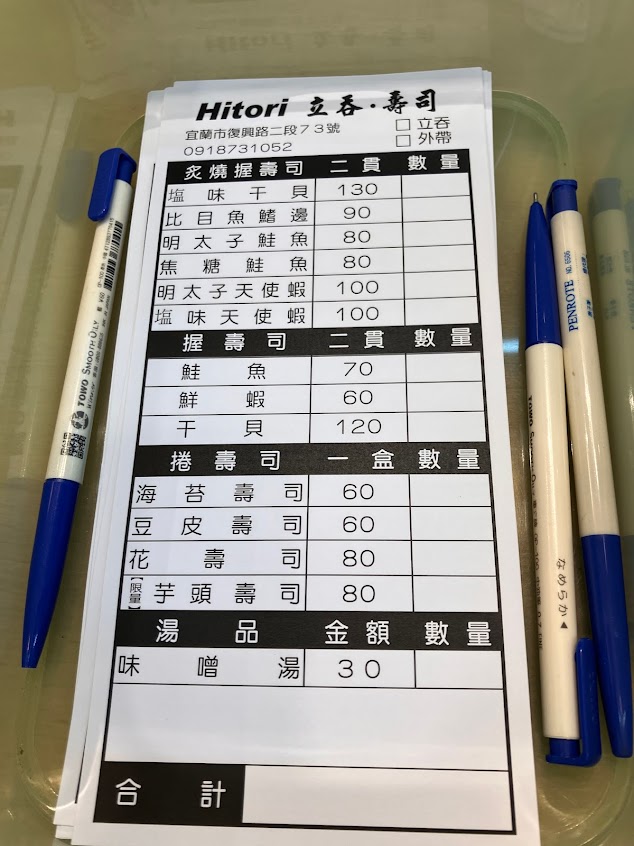 Hitori 立吞·壽司
宜蘭市復興路二段73號
0918731052
□立吞
□外帶
炙燒握壽司 二貫 數量
塩味干貝 130
比目魚鰭邊 90
明太子鮭魚 80
焦糖鮭魚 80
明太子天使蝦 100
塩味天使蝦 100
握壽司 二貫 數量
鮭魚 70
鮮蝦 60
干貝 120
捲壽司 一盒 數量
海苔壽司 60
豆皮壽司 60
花壽司 80
【限量】芋頭壽司 80
湯品 金額 數量
味噌湯 30
合計
TOWO SMOOTH OILY
PENROTE NO. 6506
なめらか